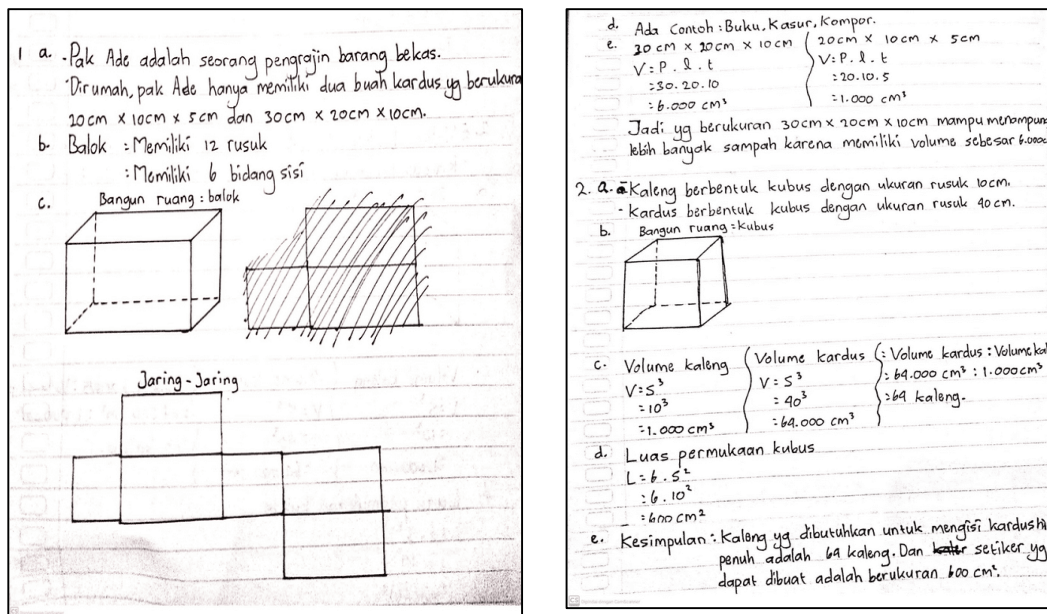 1 a. - Pak Ade adalah seorang pengrajin barang bekas.
- Dirumah, pak Ade hanya memiliki dua buah kardus yg berukura
20cm x 10cm x 5cm dan 30cm x 20cm x 10cm.
b. Balok : Memiliki 12 rusuk
: Memiliki 6 bidang sisi
c. Bangun ruang : balok
Jaring - Jaring
d. Ada Contoh : Buku, Kasur, Kompor.
e. 30 cm x 20 cm x 10 cm
V = P . l . t
= 30. 20. 10
= 6.000 cm³
20cm x 10cm x 5cm
V = P. l. t
= 20. 10. 5
= 1.000 cm³
Jadi yg berukuran 30cm x 20cm x 10cm mampu menampun
lebih banyak sampah karena memiliki volume sebesar 6.000c
2. a. - Kaleng berbentuk kubus dengan ukuran rusuk 10cm.
- Kardus berbentuk kubus dengan ukuran rusuk 40 cm.
b. Bangun ruang = kubus
c. Volume kaleng
V = S³
= 10³
= 1.000 cm³
Volume kardus
V = S³
= 40³
= 64.000 cm³
= Volume kardus : Volume kal
= 64.000 cm³ : 1.000 cm³
= 64 kaleng.
d. Luas permukaan kubus
L = 6 . S²
= 6 . 10²
= 600 cm²
e. Kesimpulan : Kaleng yg dibutuhkan untuk mengisi kardus hi
penuh adalah 64 kaleng. Dan setiker yg
dapat dibuat adalah berukuran 600 cm².